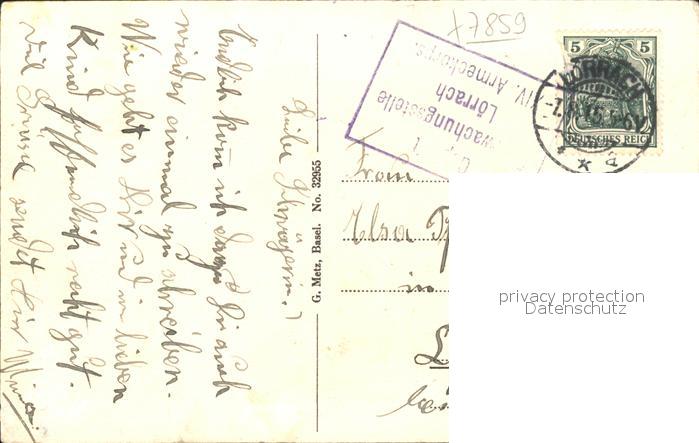 X7859
5 5
DEUTSCHES REICH
LÖRRACH
XIV. Armeekorps.
Lörrach
wachungsstelle
G. Metz, Basel. No. 32955
Liebe Schwägerin!
Endlich kom ich dazu Dir auch
wieder einmal zu schreiben.
Wie geht es Dir und im lieben
Kind hoffendlich recht gut.
Viel Grüsse sendet Dir
Frau
Elsa
in
privacy protection
Datenschutz